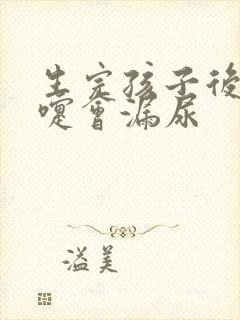 生完孩子後
嚏會漏尿
溢美